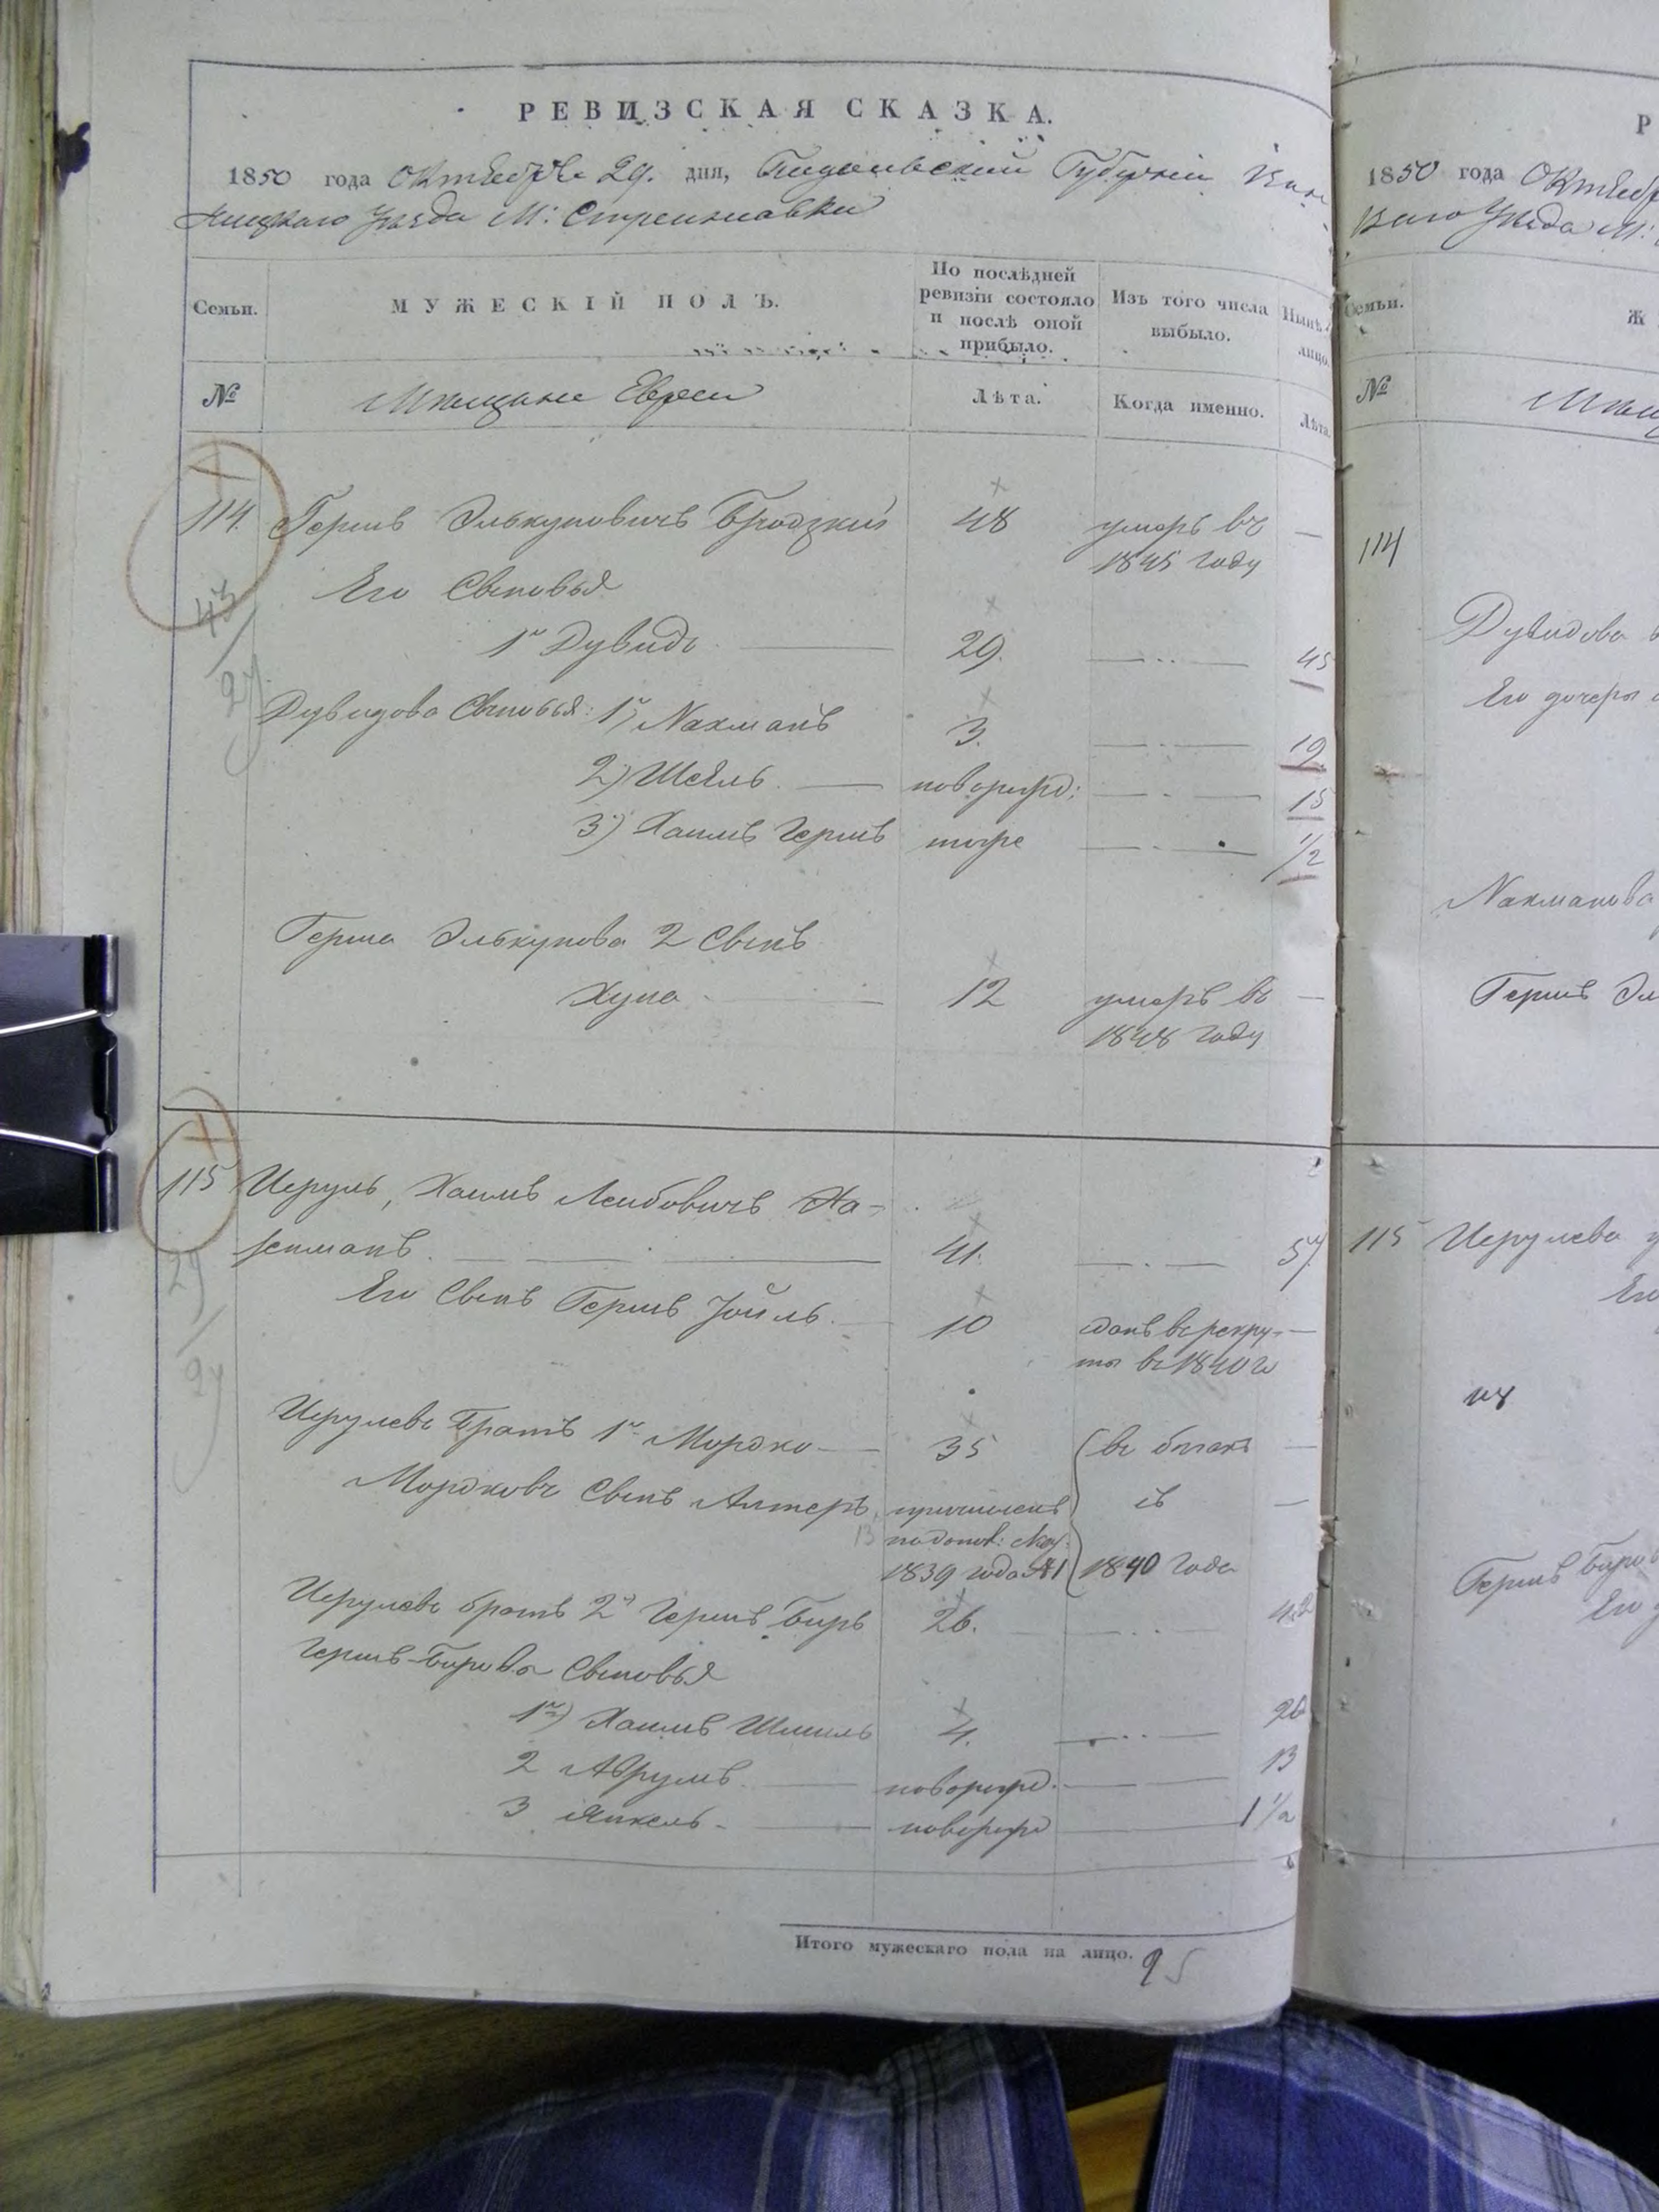 РЕВИЗСКАЯ СКАЗКА.
1850 года Октября 29. дня, Подольской Губернiи Вин
ницкаго Уѣзда М: Стрижавки
Семьи.
МУЖЕСКIЙ ПОЛЪ.
По послѣдней ревизiи состояло и послѣ оной прибыло.
Изъ того числа выбыло.
Нынѣ лицо.
№
Мѣщане Евреи
Лѣта.
Когда именно.
Лѣта.
114. Гершъ Элькуновичъ Бродзкiй 48 умеръ въ —
1845 году
43
Его Сыновья
1й Дувидъ 29. 45
27
Дувидова Сыновья: 1й Нахманъ 3. 19
2) Шеель новорожд: 15
3) Хаимъ Гершъ тоже 1/2
Герша Элькунова 2 Сынъ
Хуна 12 умеръ въ —
1848 году
115 Иерулъ, Хаимъ Лейбовичъ
41. 57
29
Его Сынъ Гершъ Іойль. 10 сданъ въ рекру- —
ты въ 1840 г
27
Иерулевъ Братъ 1й Мордко 35 въ бѣгахъ —
Мордковъ Сынъ Алтеръ причисленъ съ —
1839 года 1840 года
Иерулевъ братъ 2й Гершъ Беръ 26. 42
Гершъ-Берова Сыновья
1й) Хаимъ Шмиль 4. 20
2 Аврумъ новорожд. 13
3 Янкель новорожд 1 1/2
Итого мужескаго пола на лицо. 9
Р
1850 года Октябр
каго Уѣзда М:
Семьи.
Ж
№
Мѣщ
114
Дувидова
Его дочеры
Нахманова
Гершъ Эл
115 Иерулева
Его
Гершъ Беров
Его